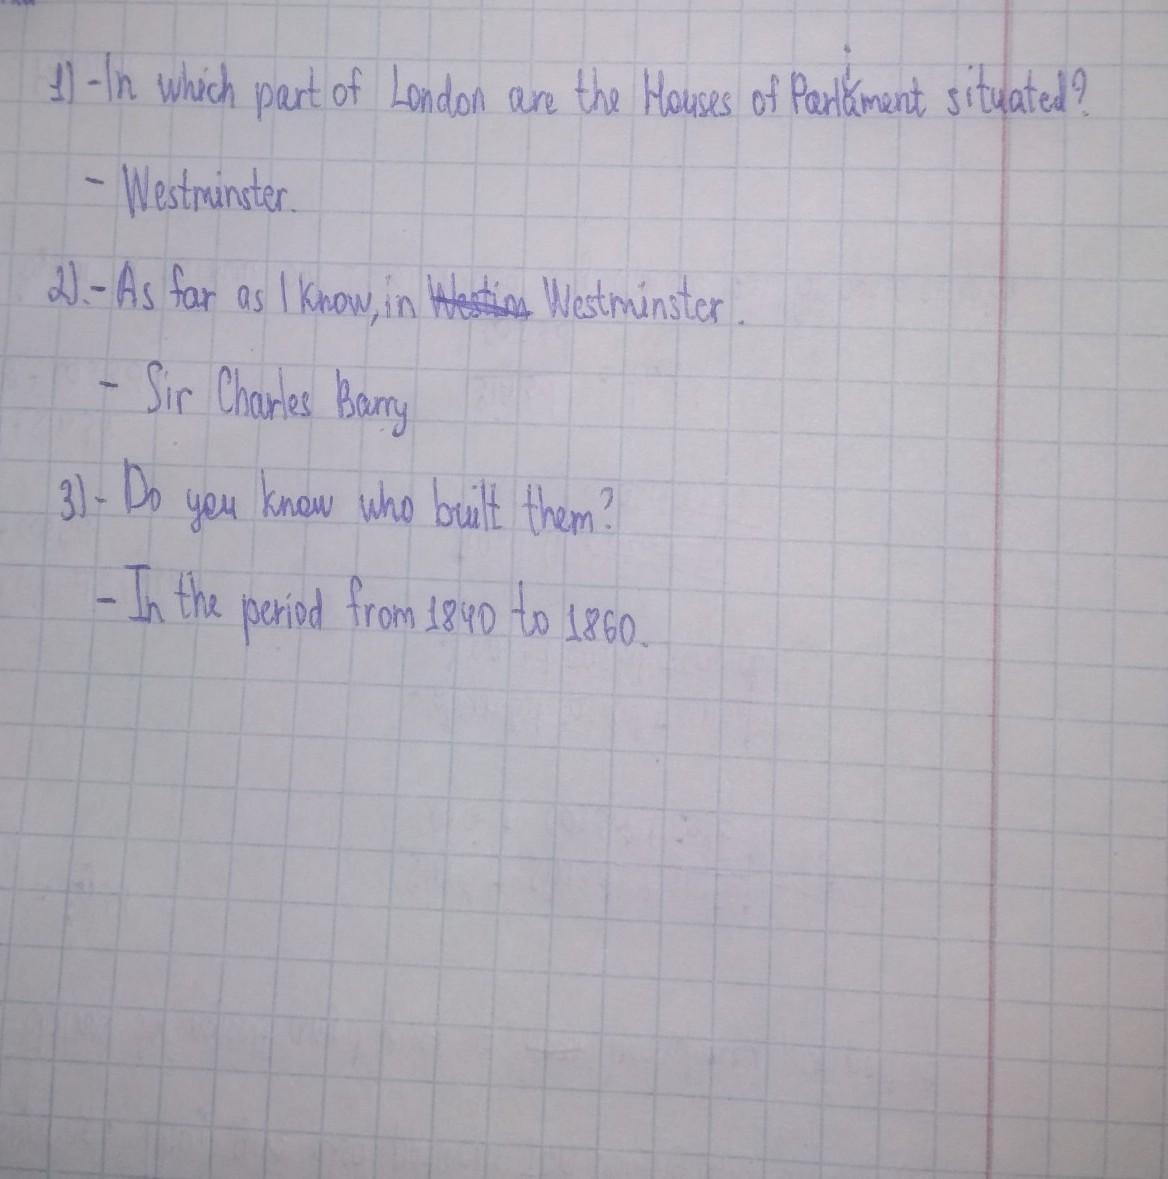 1) - In which part of London are the Houses of Parliament situated?
- Westminster.
2). - As far as I know, in Westminster.
- Sir Charles Barry
3) - Do you know who built them?
- In the period from 1840 to 1860.